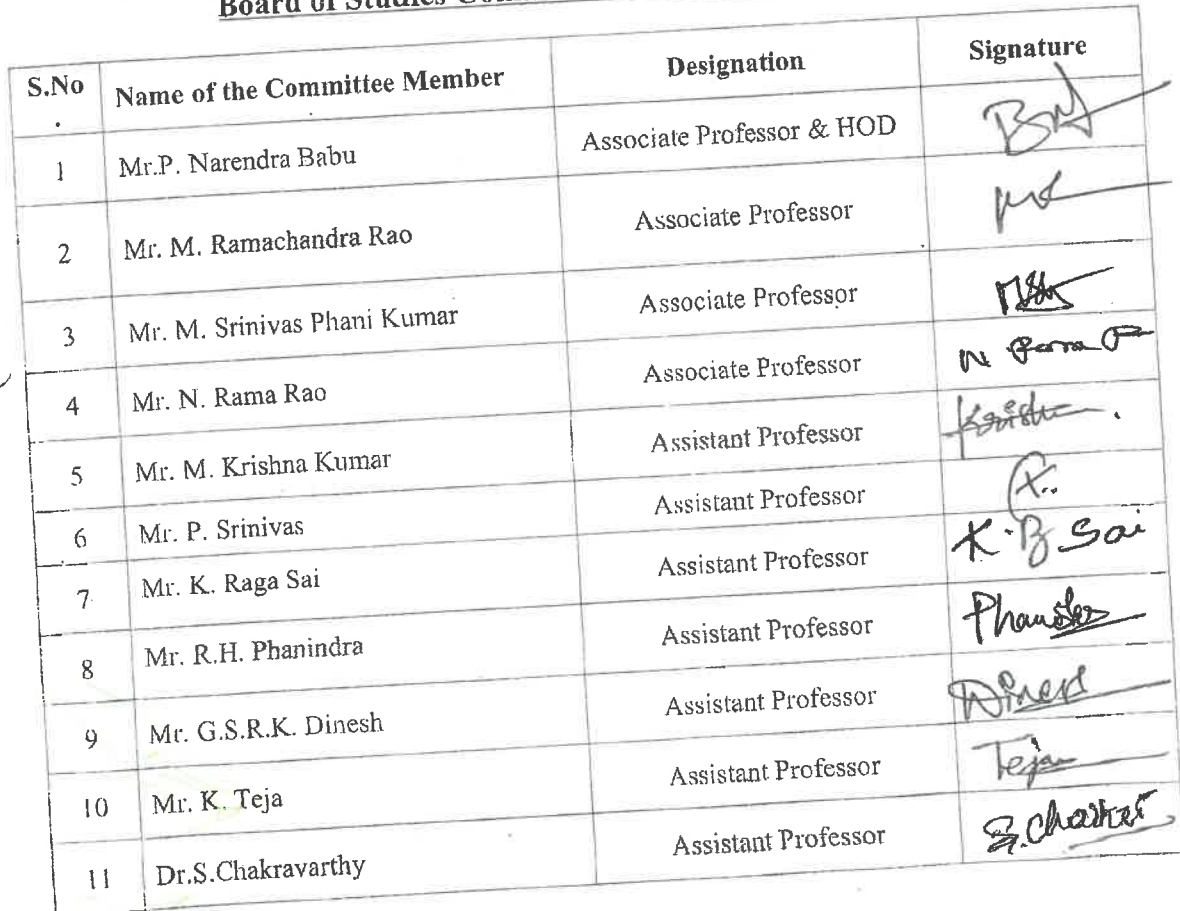 Board of Studies
S.No Name of the Committee Member Designation Signature
.
1 Mr.P. Narendra Babu Associate Professor & HOD
2 Mr. M. Ramachandra Rao Associate Professor
3 Mr. M. Srinivas Phani Kumar Associate Professor
4 Mr. N. Rama Rao Associate Professor
5 Mr. M. Krishna Kumar Assistant Professor
6 Mr. P. Srinivas Assistant Professor
7 Mr. K. Raga Sai Assistant Professor K. Sai
8 Mr. R.H. Phanindra Assistant Professor
9 Mr. G.S.R.K. Dinesh Assistant Professor Dinesh
10 Mr. K. Teja Assistant Professor Teja
11 Dr.S.Chakravarthy Assistant Professor